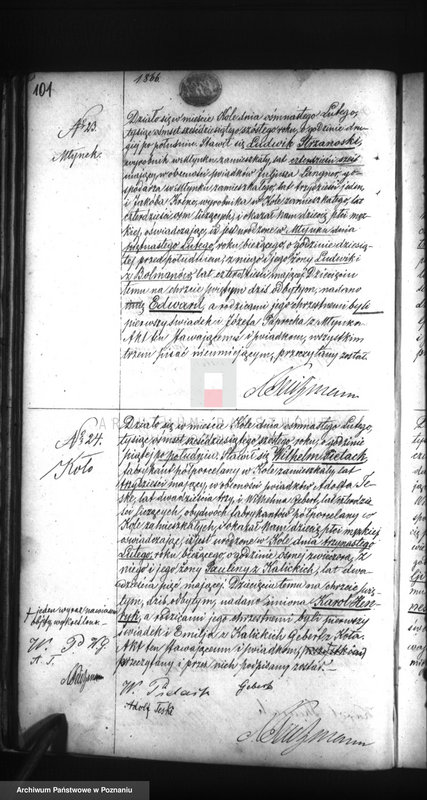 104
1866.
№ 23.
Młynek.
Działo się w mieście Kole dnia ósmnastego Lutego,
tysiąc ośmset sześćdziesiątego szóstego roku, o godzinie dru-
giej po południu. Stawił się Ludwik Strzanoski,
wyrobnik w Młynku zamieszkały, lat czterdzieści sześć
mający, w obecności świadków Juljusza Langner, go-
spodarza w Młynku zamieszkałego, lat trzydzieści jeden,
i Jakóba wyrobnika w Kole zamieszkałego, lat
czterdzieści liczących, i okazał nam dziecię płci męz-
kiej, oświadczając, iż jest urodzone w Młynku dnia
piętnastego Lutego, roku bieżącego o godzinie dziesią-
tej przed południem, z niego i jego żony Ludwiki
z lat czterdzieści mającej. Dziecięciu
temu na chrzcie świętym dziś odbytym, nadano
imię Edward, a rodzicami jego chrzestnemi byli
pierwszy świadek i Józefa Paprocka z Młynka.
Akt ten stawającemu i świadkom, wszystkim
trzem pisać nieumiejącym, przeczytany został.
№ 24.
Koło
Działo się w mieście Kole dnia ósmnastego Lutego,
tysiąc ośmset sześćdziesiątego szóstego roku, o godzinie
piątej po południu. Stawił się Wilhelm Pielach,
fabrykant półporcelany w Kole zamieszkały, lat
trzydzieści mający, w obecności świadków Adolfa Te-
ske, lat dwadzieścia trzy, i Wilhelma Gebert, lat czterdzie-
ści liczących, obydwóch fabrykantów półporcelany w
Kole zamieszkałych, i okazał nam dziecię płci męzkiej
oświadczając, iż jest urodzone w Kole dnia trzynastego
Lutego, roku bieżącego o godzinie ósmej z wieczora, z
niego i jego żony Pauliny z Kalickich, lat dwa-
dzieścia pięć mającej. Dziecięciu temu na chrzcie świę-
tym, dziś odbytym, nadano imiona Karol Hen-
ryk, a rodzicami jego chrzestnemi byli pierwszy
świadek i Emilja z Kalickich Gebert z Koła.
Akt ten stawającemu i świadkom,
przeczytany i przez nich podpisany został.
jeden wyraz
W. P. W. G.
A. T.
W. Pielach Gebert
Adolf Teske
Archiwum Państwowe w Poznaniu